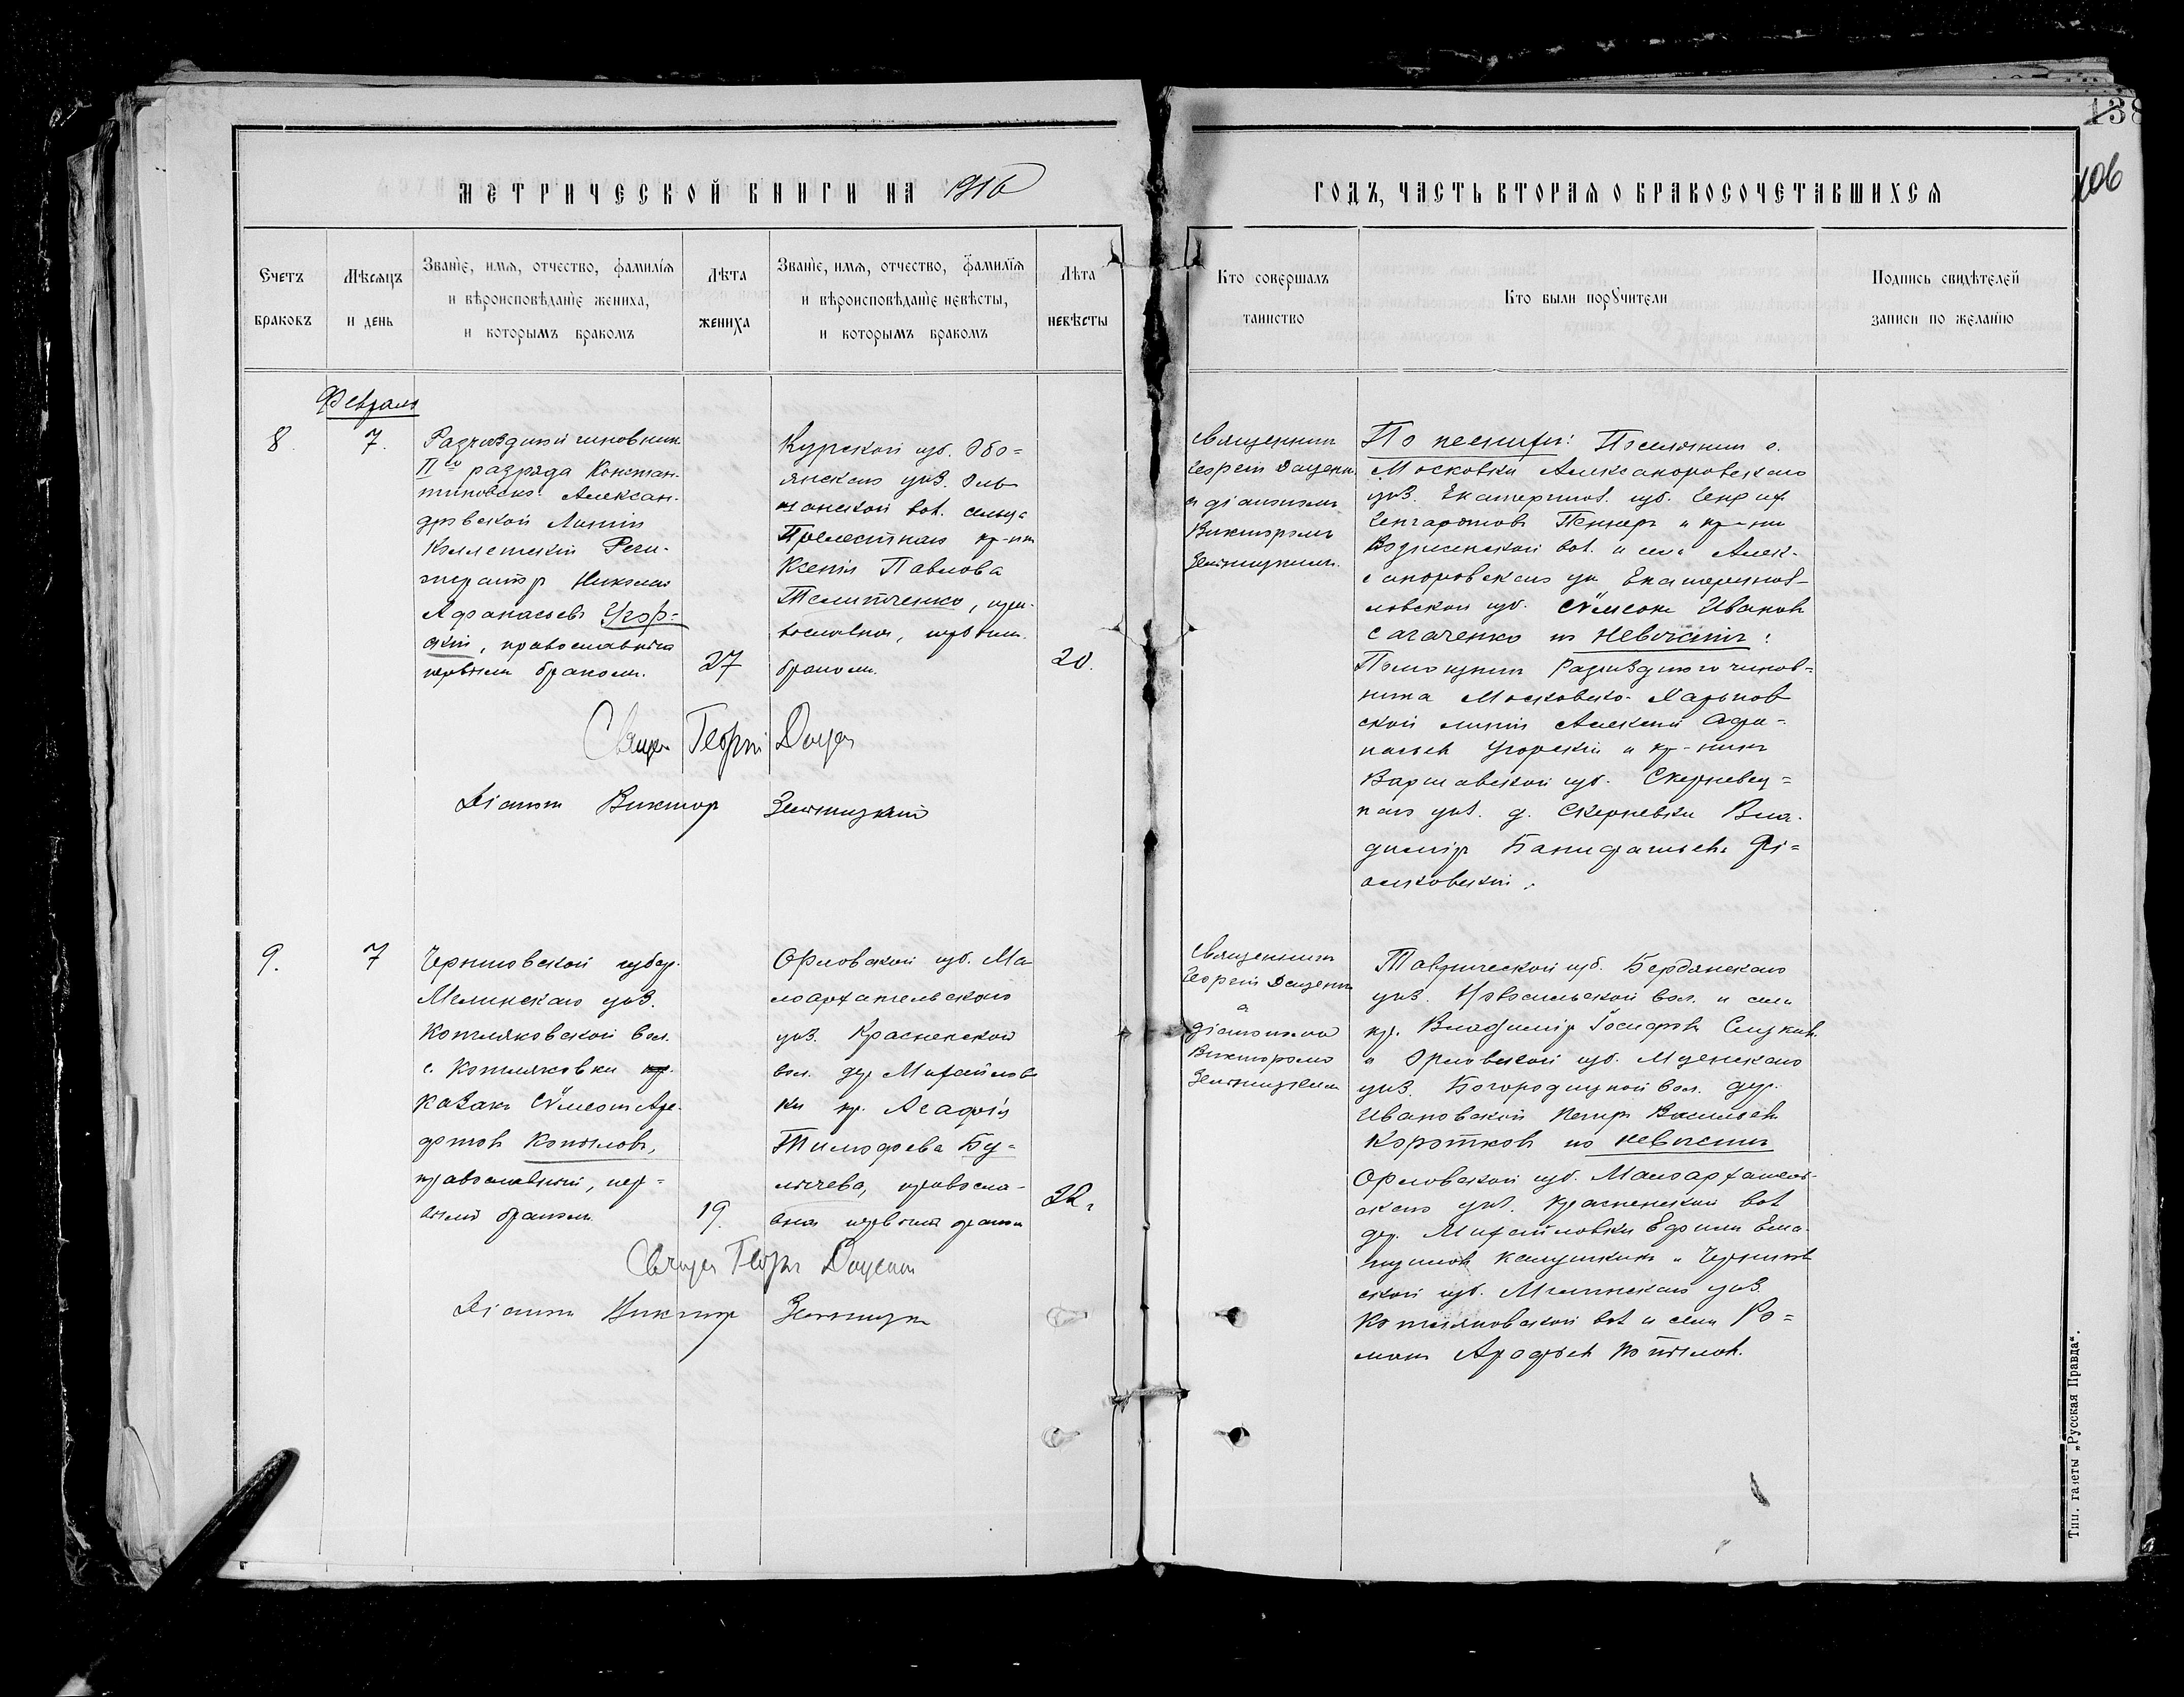 138
106
МЕТРИЧЕСКОЙ КНИГИ НА 1916
ГОДЪ, ЧАСТЬ ВТОРАЯ О БРАКОСОЧЕТАВШИХСЯ
Счетъ
браковъ
Мѣсяцъ
и день
Званіе, имя, отчество, фамилія
и вѣроисповѣданіе жениха,
и которымъ бракомъ
Лѣта
жениха
Званіе, имя, отчество, фамилія
и вѣроисповѣданіе невѣсты,
и которымъ бракомъ
Лѣта
невѣсты
Кто совершалъ
таинство
Кто были порꙋчители
Подпись свидѣтелей
записи по желанію
Февраля
8.
7.
Разъѣздной чиновник
II го разряда Констан-
тиновско-Алексан-
дровской Линіи
Коллежскій Реги-
страторъ Николай
Афанасьевъ Угор-
скій, православный
первымъ бракомъ.
27
Курской губ. Обо-
янскаго уѣз.
вол. сельца
Прелестнаго кр-ка
Ксенія Павлова
Телитченко, пра-
вославная, первым
бракомъ.
20.
Священникъ
Георгій Доценко
съ діакономъ
Викторомъ
По женихѣ: Поселянинъ с.
Московки Александровскаго
уѣз. Екатеринос. губ. Генрих
Пеннеръ и кр-нин
Вознесенской вол. и села Алек-
сандровскаго уѣ Екатеринос-
лавской губ. Сѵмеонъ Ивановъ
Сагаченко по невѣстѣ:
Помощникъ Разъѣзднаго чинов-
ника Московско-Харьков
ской линіи Алексѣй Афа-
насьевъ Угорскій и кр-нинъ
Варшавской губ. Скерневец-
каго уѣз. д. Скерневки Вла-
диміръ Банифатьевъ Фі-
алковскій.
Свящ. Георгій Доцен
Діаконъ Викторъ
9.
7
Черниговской губер.
Мглинскаго уѣз.
Котляковской вол.
с. Котляковки кр.
казакъ Сѵмеонъ Аре-
фьевъ Копыловъ,
православный, пер-
вымъ бракомъ
19.
Орловской губ. Ма
лоархангельскаго
уѣз. Красненской
вол. дер Михайлов
ки кр. Агафія
Тимофеева Бу-
лычева, правосла-
вная первымъ бракомъ
22.
Священникъ
Георгій Доценко
съ
діакономъ
Викторомъ
Таврической губ. Бердянскаго
уѣз. Новоспасской вол. и села
кр. Владиміръ Іосифовъ
и Орловской губ. Мценскаго
уѣз. Богородицкой вол. дер.
Ивановской Петръ Васильевъ
Коротковъ по невѣстѣ
Орловской губ. Малоархангель-
скаго уѣз. Красненской вол
дер. Михайловки Ефимъ
и Чернигов
ской губ. Мглинскаго уѣз.
Котляковской вол и села Ро-
манъ Арефьевъ Копыловъ.
Свящ Георгій Доценко
Діаконъ Викторъ
Тип. газеты „Русская Правда“.